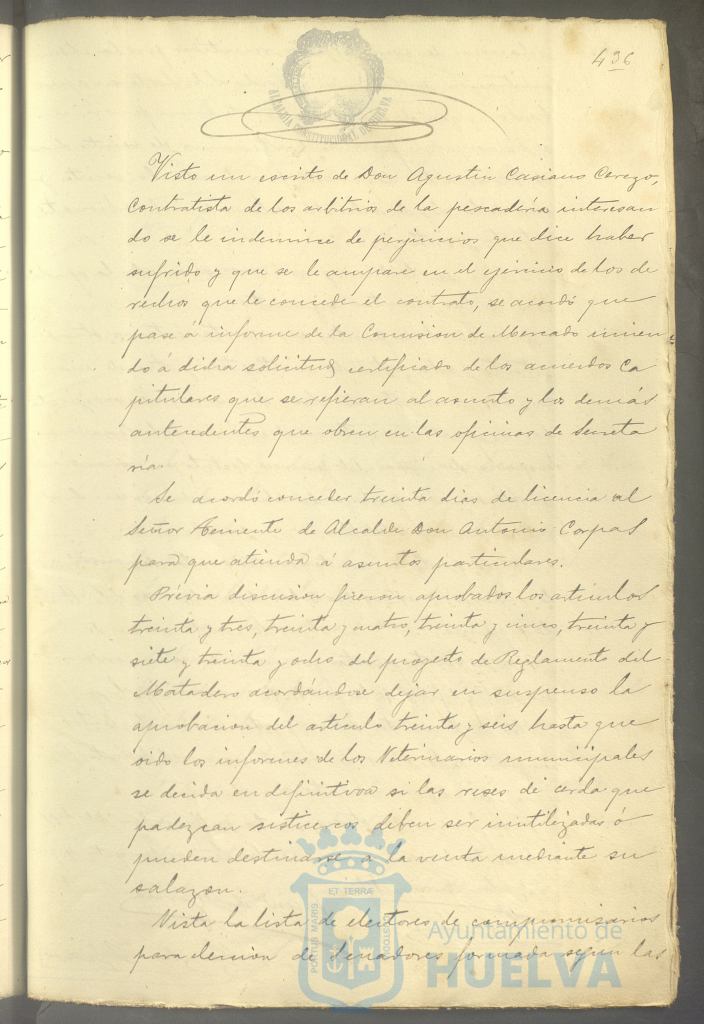 436
ALCALDIA CONSTITUCIONAL DE HUELVA
Visto un escrito de Don Agustin Casiano Cerezo,
contratista de los arbitrios de la pescadería interesan
do se le indemnice de perjuicios que dice haber
sufrido y que se le ampare en el ejercicio de los de
rechos que le concede el contrato, se acordó que
pase á informe de la Comision de Mercado unien
do á dicha solicitud certificado de los acuerdos ca
pitulares que se refieran al asunto y los demás
antecedentes que obren en las oficinas de Secreta
ría.
Se acordó conceder treinta dias de licencia al
Señor Teniente de Alcalde Don Antonio Corpas
para que atienda á asuntos particulares.
Prévia discusion fueron aprobados los artículos
treinta y tres, treinta y cuatro, treinta y cinco, treinta y
siete y treinta y ocho del proyecto de Reglamento del
Matadero acordándose dejar en suspenso la
aprobacion del artículo treinta y seis hasta que
oido los informes de los Veterinarios municipales
se decida en definitiva si las reses de cerda que
padezcan sisticercos deben ser inutilizadas ó
pueden destinarse a la venta mediante su
salazon.
Vista la lista de electores de compromisarios
para eleccion de Senadores formada segun las
PORTUS MARIS ET TERRÆ CUSTODIA
Ayuntamiento de
HUELVA